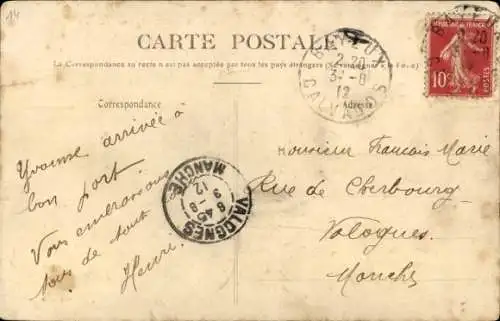 14
CARTE POSTALE
La Correspondance au recto n'est pas acceptée par tous les pays étrangers (Se renseigner
Correspondance
Adresse
BAYEUX
2 20
31 -8
12
CALVADOS
10c
POSTES
VALOGNES
6 45
-8
12
MANCHE
Yvonne arrivée à
bon port
Vous embrassons
tous de tout
Henri.
Monsieur Francois Marie
Rue de Cherbourg
Valognes
Manche